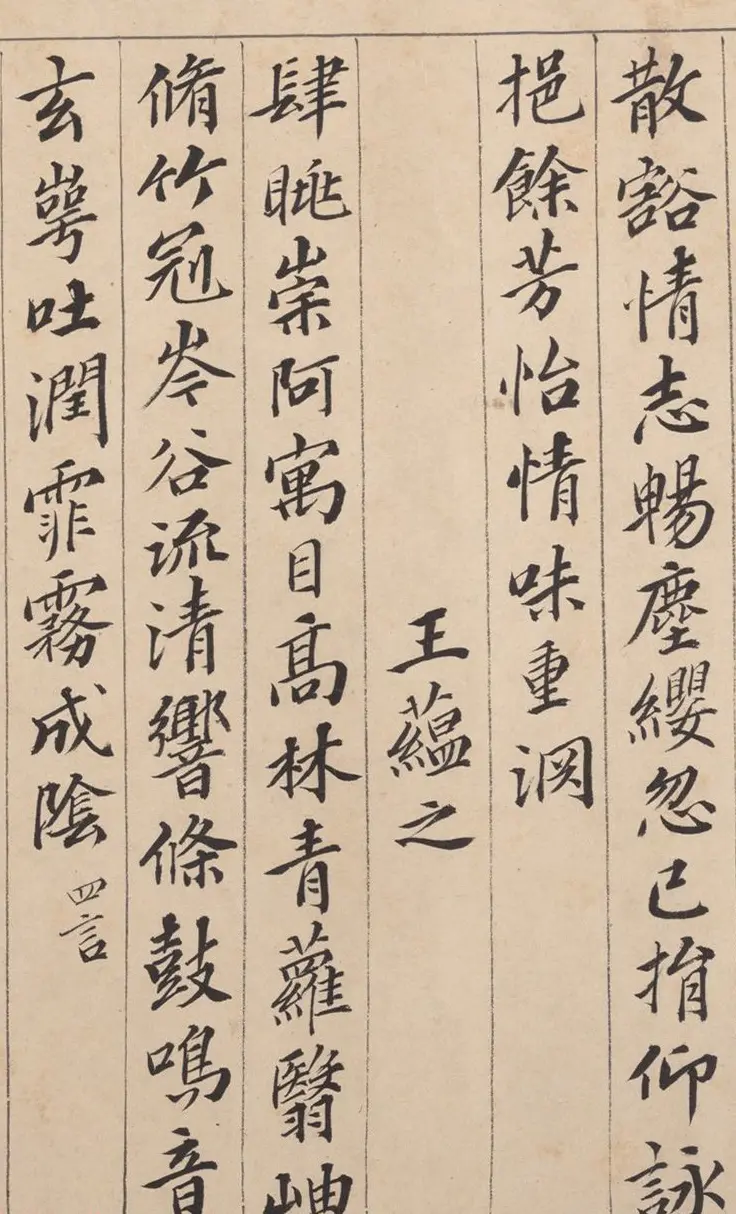 散豁情志暢塵纓忽已捐仰詠
挹餘芳怡情味重淵
王蘊之
肆眺崇阿寓目髙林青蘿翳岫
脩竹冠岑谷流清響條鼓鳴音
玄崿吐潤霏霧成陰 四言